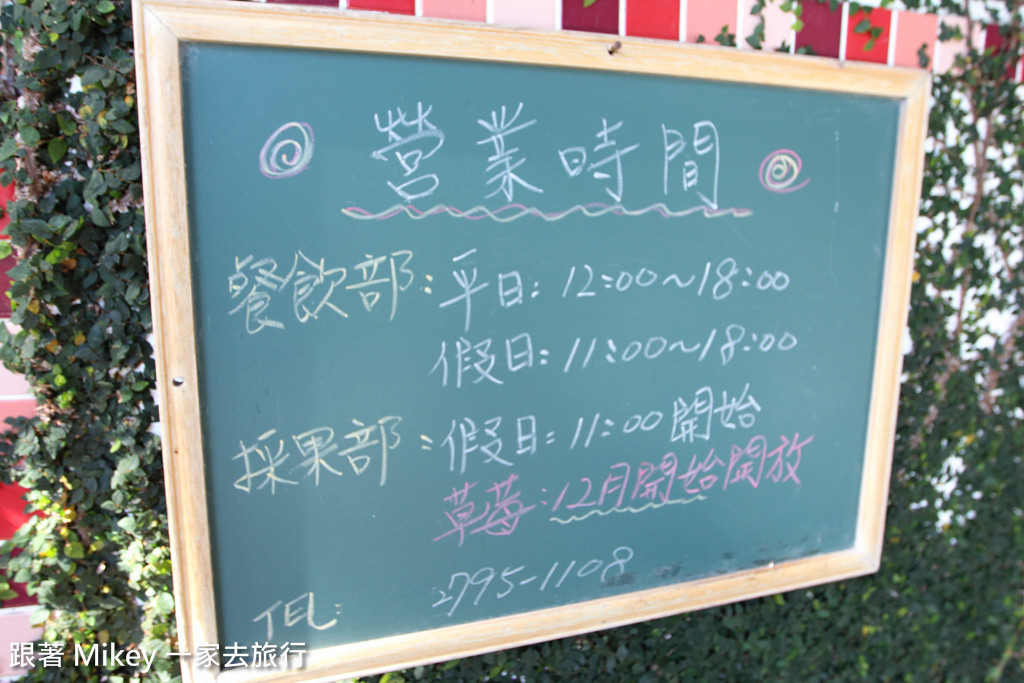 營業時間
餐飲部：平日：12:00~18:00
假日：11:00~18:00
採果部：假日：11:00開始
草莓：12月開始開放
TEL： 2795-1108
跟著 Mikey 一家去旅行